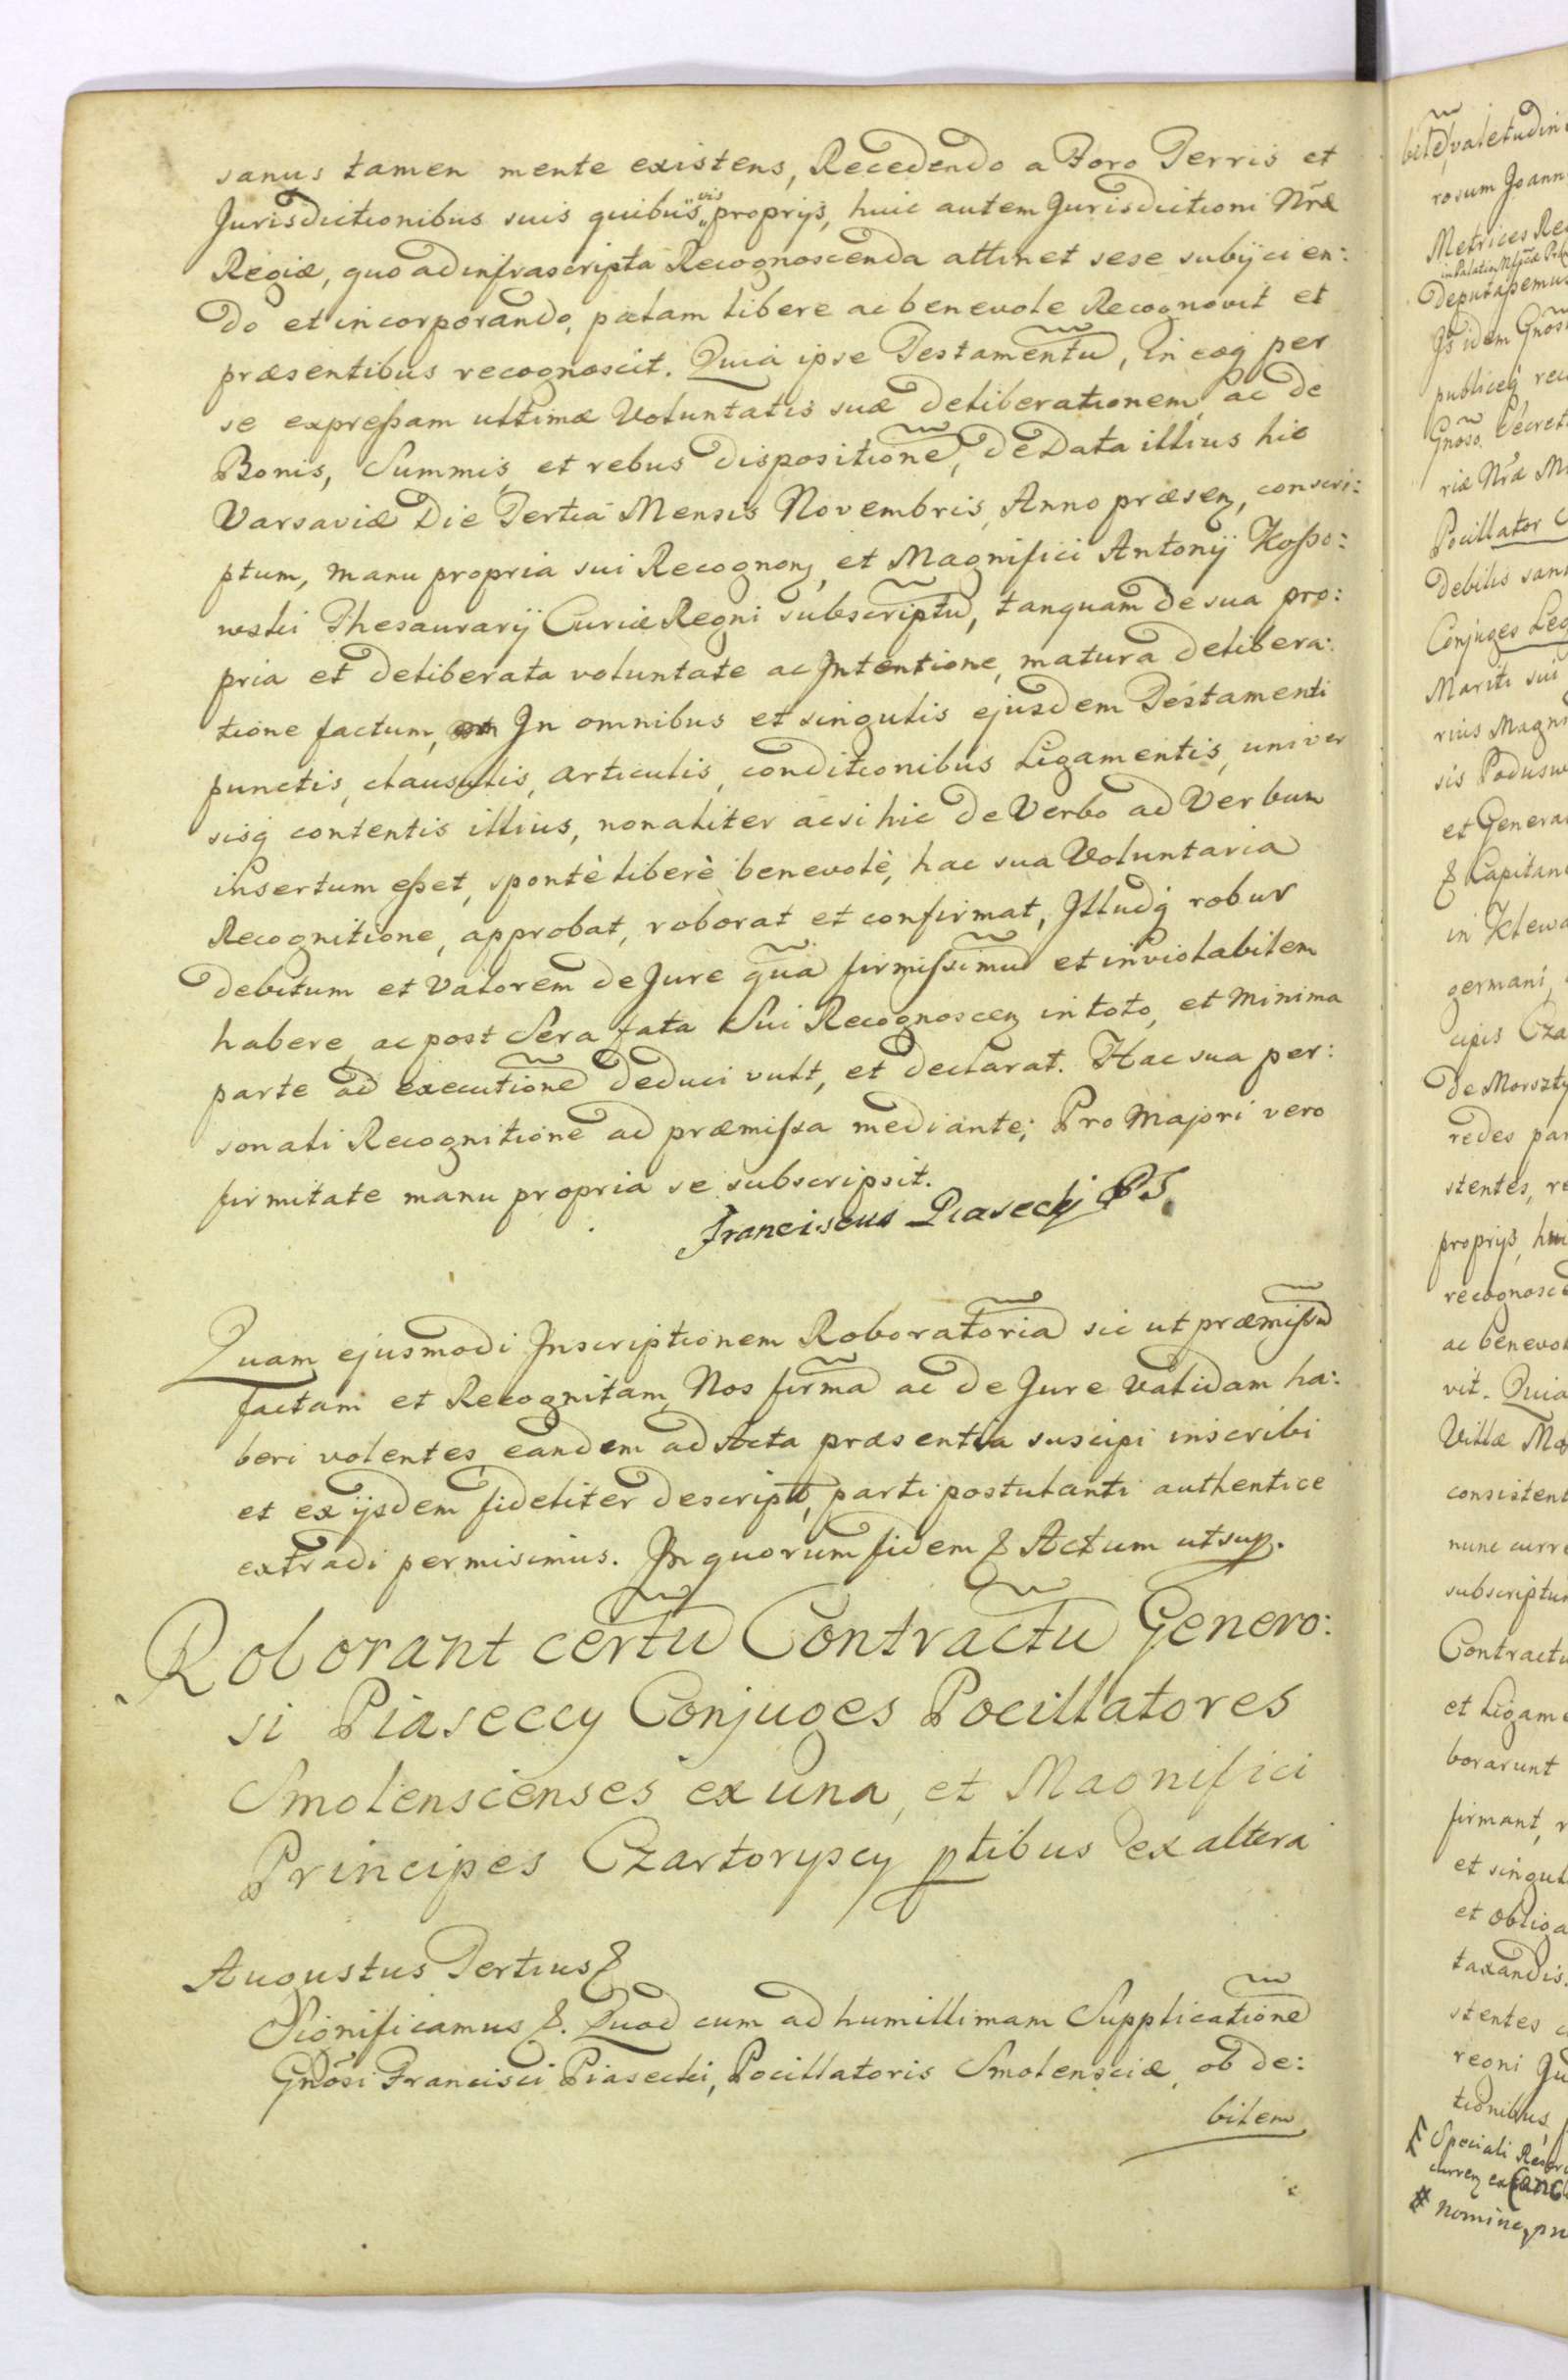 sanus tamen mente existens, Recedendo a Foro Terris et
Jurisdictionibus suis quibus„vis„ proprijs, huic autem Jurisdictioni Nrӕ
Regiæ, quo ad infrascripta Recognoscenda attinet sese subijcien:
do et incorporando, palam libere ac benevole Recognovit et
præsentibus recognoscit. Quia ipse Testamentū, In eoq per
se expreßam ultimæ Voluntatis suæ deliberationem, ac de
Bonis, Summis, et rebus dispositionē, de Data illius hic
Varsaviæ Die Tertia Mensis Novembris, Anno præsen, conscri:
ptum, manu propria sui Recognoń, et Magnifici Antonij Koßo:
wski Thesaurarij Curiæ Regni subscriptū, tanquam de sua pro:
pria et deliberata voluntate ac Intentione, matura delibera:
tione factum, In omnibus et singulis ejusdem Testamenti
punctis, clausulis, articulis, conditionibus Ligamentis, univer
sisq contentis illius, nonaliter acsi hic de Verbo ad Verbum
insertum eßet, spontè liberè benevolè, hac sua Voluntaria
Recognitione, approbat, roborat et confirmat, Illudq robur
debitum et Valorem de Jure quā firmissimū et inviolabilem
habere, ac post Sera fata Sui Recognoscen in toto, et minima
parte ad executionē deduci vult, et declarat. Hac sua per:
sonali Recognitione ad præmissa mediante; Pro Majori vero
firmitate manu propria se subscripsit.
Franciscus Piasecki PS.
Quam ejusmodi Inscriptionem Roboratoriā sic ut præmissū
factam et Recognitam, Nos firmā ac de Jure Validam ha:
beri volentes, eandem ad Acta præsentia suscipi inscribi
et ex ijsdem fideliter descript, parti postulanti authentice
extradi permisimus. In quorum fidem & Actum ut sup.
Roborant certū Contractū Genero:
si Piaseccy Conjuges Pocillatores
Smolenscenses ex una, et Magnifici
Principes Czartoryscy ptibus ex altera
Augustus Tertius &
Significamus &. Quod cum ad humillimam Supplicationē
Gnōsi Francisci Piasecki, Pocillatoris Smolensciæ, ob de:
bilem
valetudin
rosum Joann
Metrices Re
Deputaßemus
idem Gnos
publiceq rec
Gnoso Secret
riæ Nrӕ M
Pocillator
debilis san
Conjuges Leg
Mariti sui
rius Magn
sis Podusw
et Genera
& Capitan
in Klewa
germani,
cipis Cza
de Morszty
redes par
stentes, re
proprijs, hu
recognosce
ac benevol
vit. Quia
Villæ Ma
consistent
nunc curre
subscriptu
Contractu
et Ligame
borarunt
firmant, r
et singul
et obliga
taxandis.
stentes
regni Ju
tionibus,
Speciali
# nomine